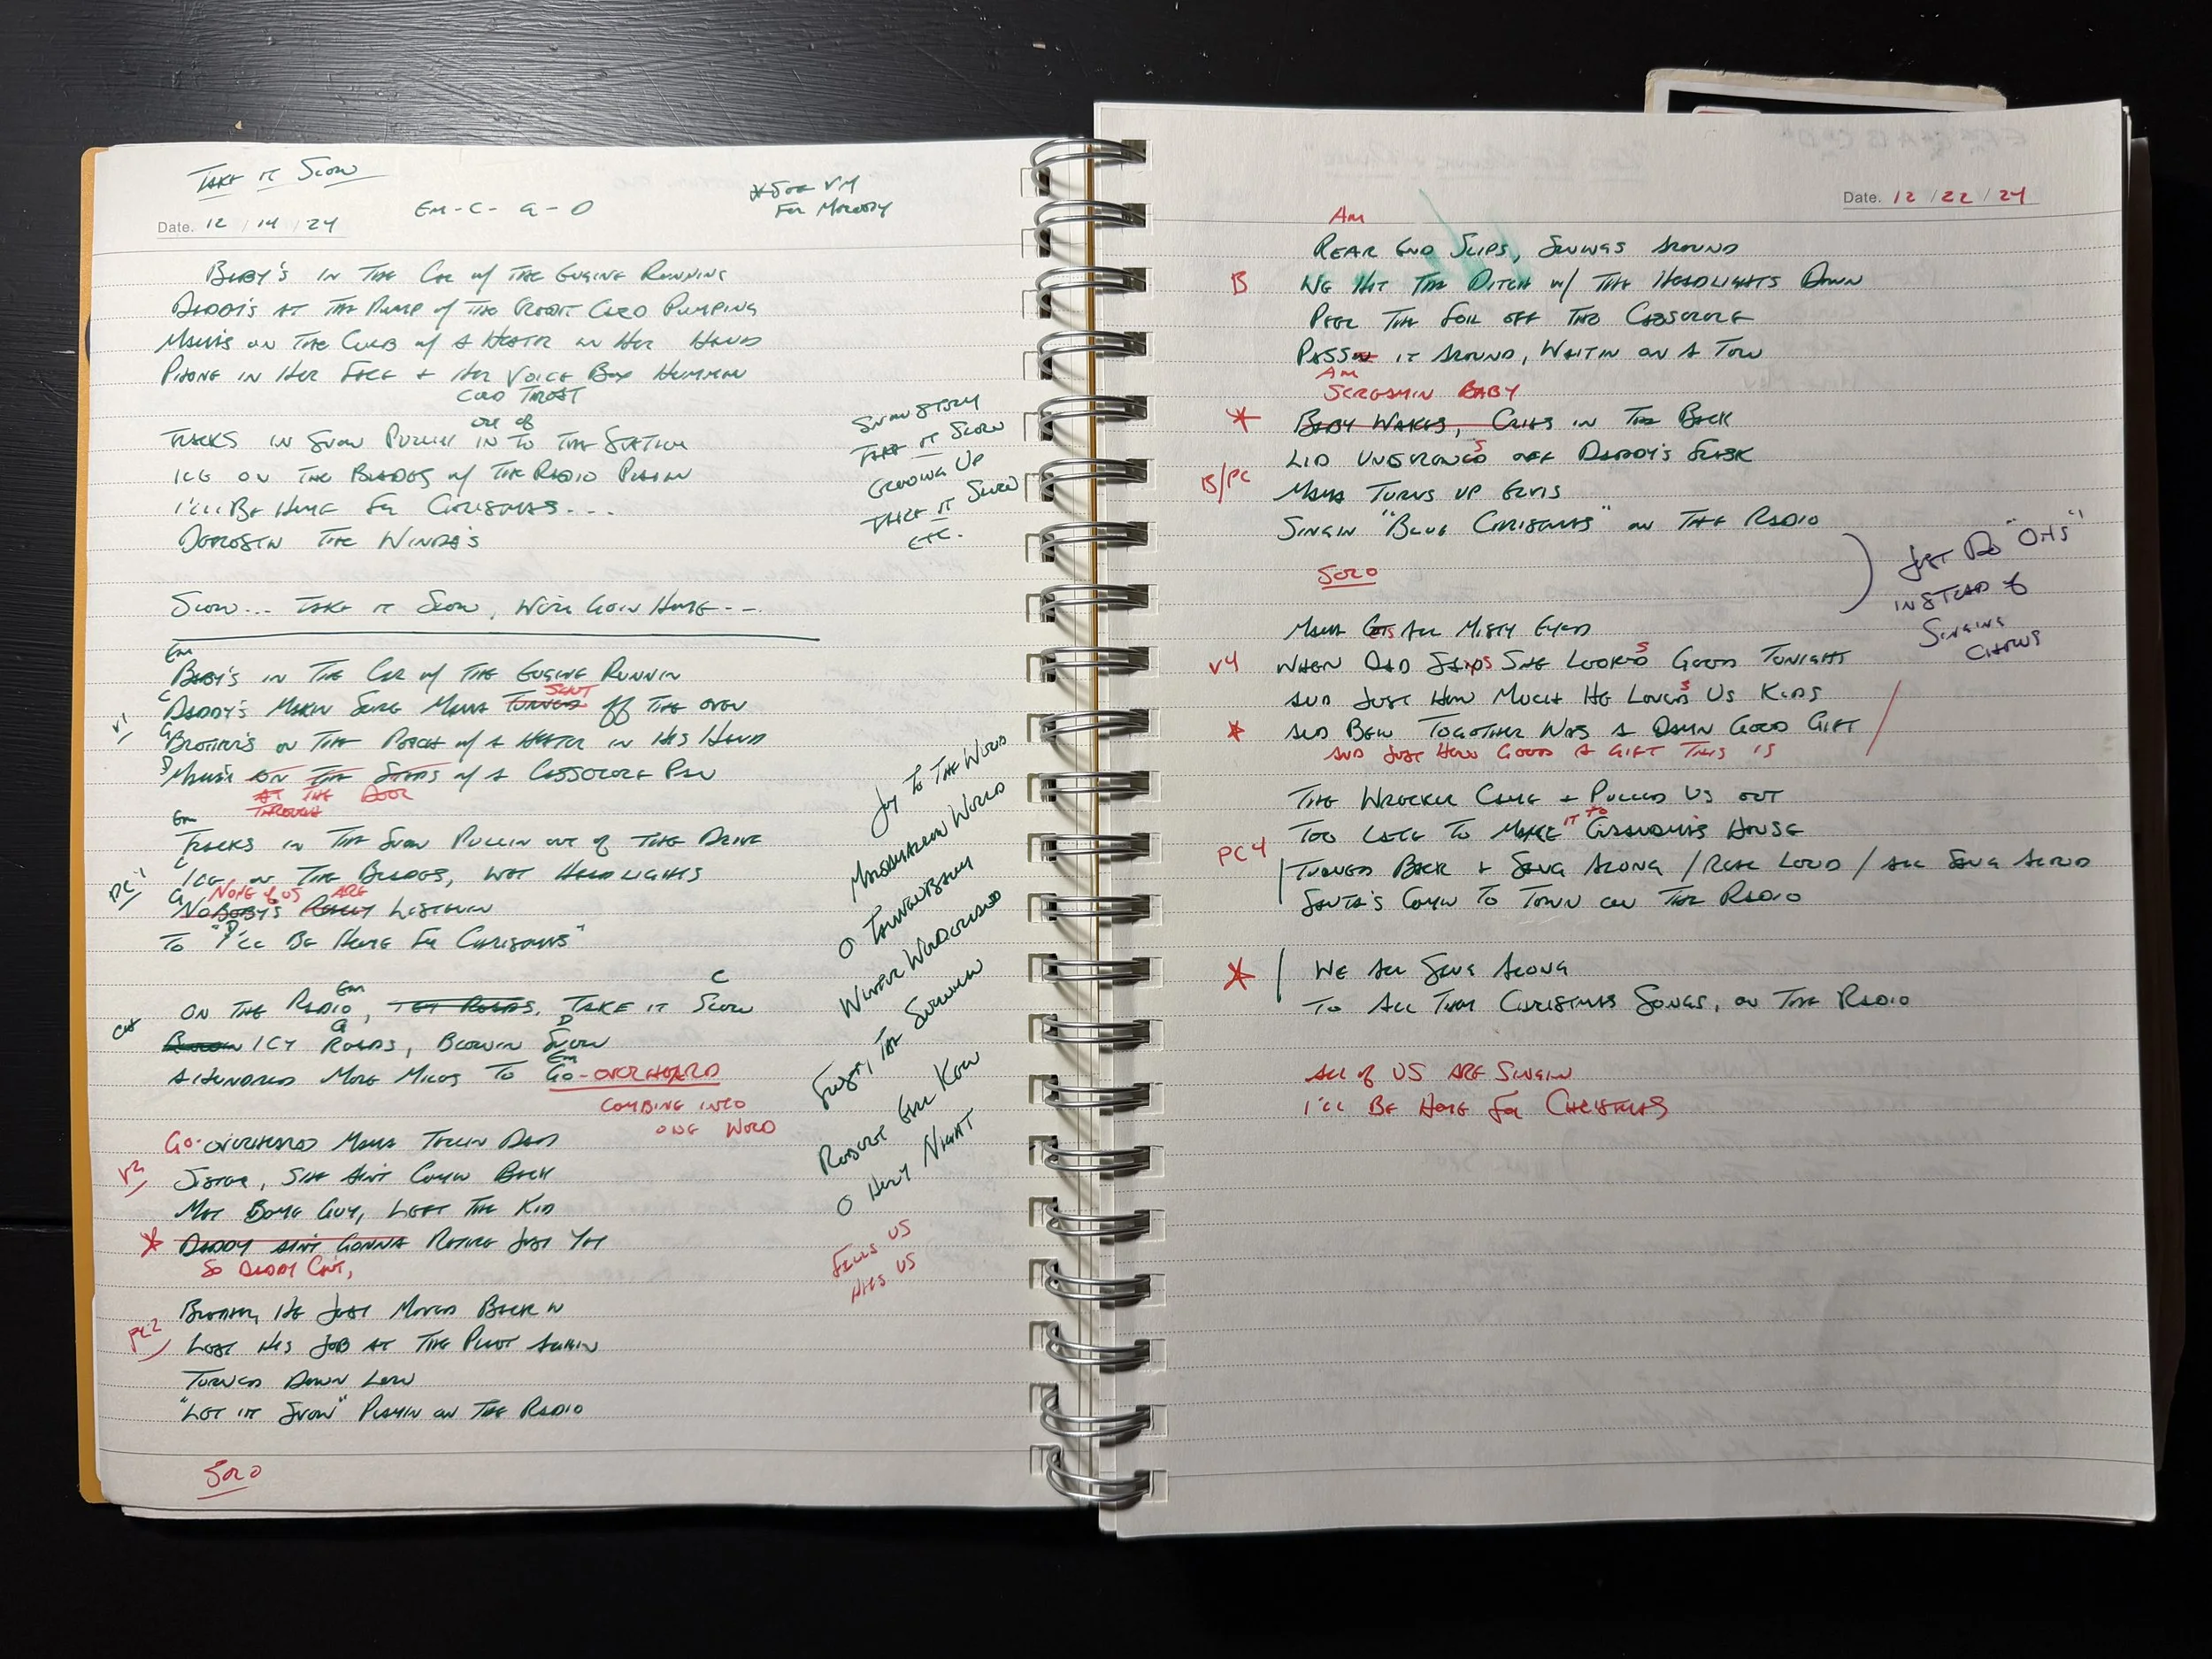 TAKE IT SLOW
Date. 12 / 14 / 24
Em - C - G - D
* SEE VM
FOR MELODY
BABY'S IN THE CAR w/ THE ENGINE RUNNING
DADDY'S AT THE PUMP w/ THE CREDIT CARD PUMPING
MAMA'S ON THE CURB w/ A HEATR IN HER HAND
PHONE IN HER FACE + HER VOICE BOX HUMMIN
COLD
OUT OF
TRACKS IN SNOW PULLIN IN TO THE STATION
ICE ON THE BLADES w/ THE RADIO PLAYIN
I'LL BE HOME FOR CHRISTMAS....
DEFROSTIN THE WINDA'S
SLOW... TAKE IT SLOW, WE'RE GOIN HOME---
SNOW STORY
TAKE IT SLOW
GROWING UP
TAKE IT SLOW
ETC.
Em
BABY'S IN THE CAR w/ THE ENGINE RUNNIN
SHUT
C DADDY'S MAKIN SURE MAMA TURNED OFF THE OVEN
V1
G BROTHER'S ON THE PORCH w/ A HEATER IN HIS HAND
D MAMA'S ON THE STEPS w/ A CASSEROLE PAN
AT THE DOOR
THROUGH
Em
TRACKS IN THE SNOW PULLIN OUT OF THE DRIVE
C ICE ON THE BLADES, WET HEADLIGHTS
PC1
G NONE OF US ARE
NOBODY'S REALLY LISTENIN
D
TO "I'LL BE HOME FOR CHRISTMAS"
Em C
ON THE RADIO, TAKE IT SLOW
CH
G D
BLOWIN ICY ROADS, BLOWIN SNOW
Em
A HUNDRED MORE MILES TO GO-OVERHEARD
COMBINE INTO
ONE WORD
GO-OVERHEARD MAMA TELLIN DAD
V2
SISTER, SHE AIN'T COMIN BACK
MET SOME GUY, LEFT THE KID
* DADDY AIN'T GONNA RETIRE JUST YET
SO DADDY CAN'T,
BROTHER, HE JUST MOVED BACK IN
PC2
LOST HIS JOB AT THE PLANT AGAIN
TURNED DOWN LOW
"LET IT SNOW" PLAYIN ON THE RADIO
SOLO
JOY TO THE WORLD
MARSHMALLOW WORLD
O TANNENBAUM
WINTER WONDERLAND
FROSTY THE SNOWMAN
ROCKIN
O HOLY NIGHT
FILLS US
HITS US
Date. 12 / 22 / 24
Am
REAR END SLIPS, SWINGS AROUND
B WE HIT THE DITCH w/ THE HEADLIGHTS DOWN
PEEL THE FOIL OFF THE CASSEROLE
PASSIN IT AROUND, WAITIN ON A TOW
Am
SCREAMIN BABY
* BABY WAKES, CRIES IN THE BACK
LID UNSCREWED S OFF DADDY'S FLASK
B/PC
MAMA TURNS UP ELVIS
SINGIN "BLUE CHRISTMAS" ON THE RADIO
SOLO
JUST DO "OHS"
INSTEAD OF
SINGING
CHORUS
MAMA GETS ALL MISTY EYED
V4 WHEN DAD SAYS SHE LOOKED S GOOD TONIGHT
AND JUST HOW MUCH HE LOVED S US KIDS
* AND BEIN TOGETHER WAS A DAMN GOOD GIFT
AND JUST HOW GOOD A GIFT THIS IS
THE WRECKER CAME + PULLED US OUT
IT TO
TOO LATE TO MAKE GRANDMA'S HOUSE
PC4
TURNED BACK + SANG ALONG / REAL LOUD / ALL SANG ALOUD
SANTA'S COMIN TO TOWN ON THE RADIO
* WE ALL SANG ALONG
TO ALL THEM CHRISTMAS SONGS, ON THE RADIO
ALL OF US ARE SINGIN
I'LL BE HOME FOR CHRISTMAS